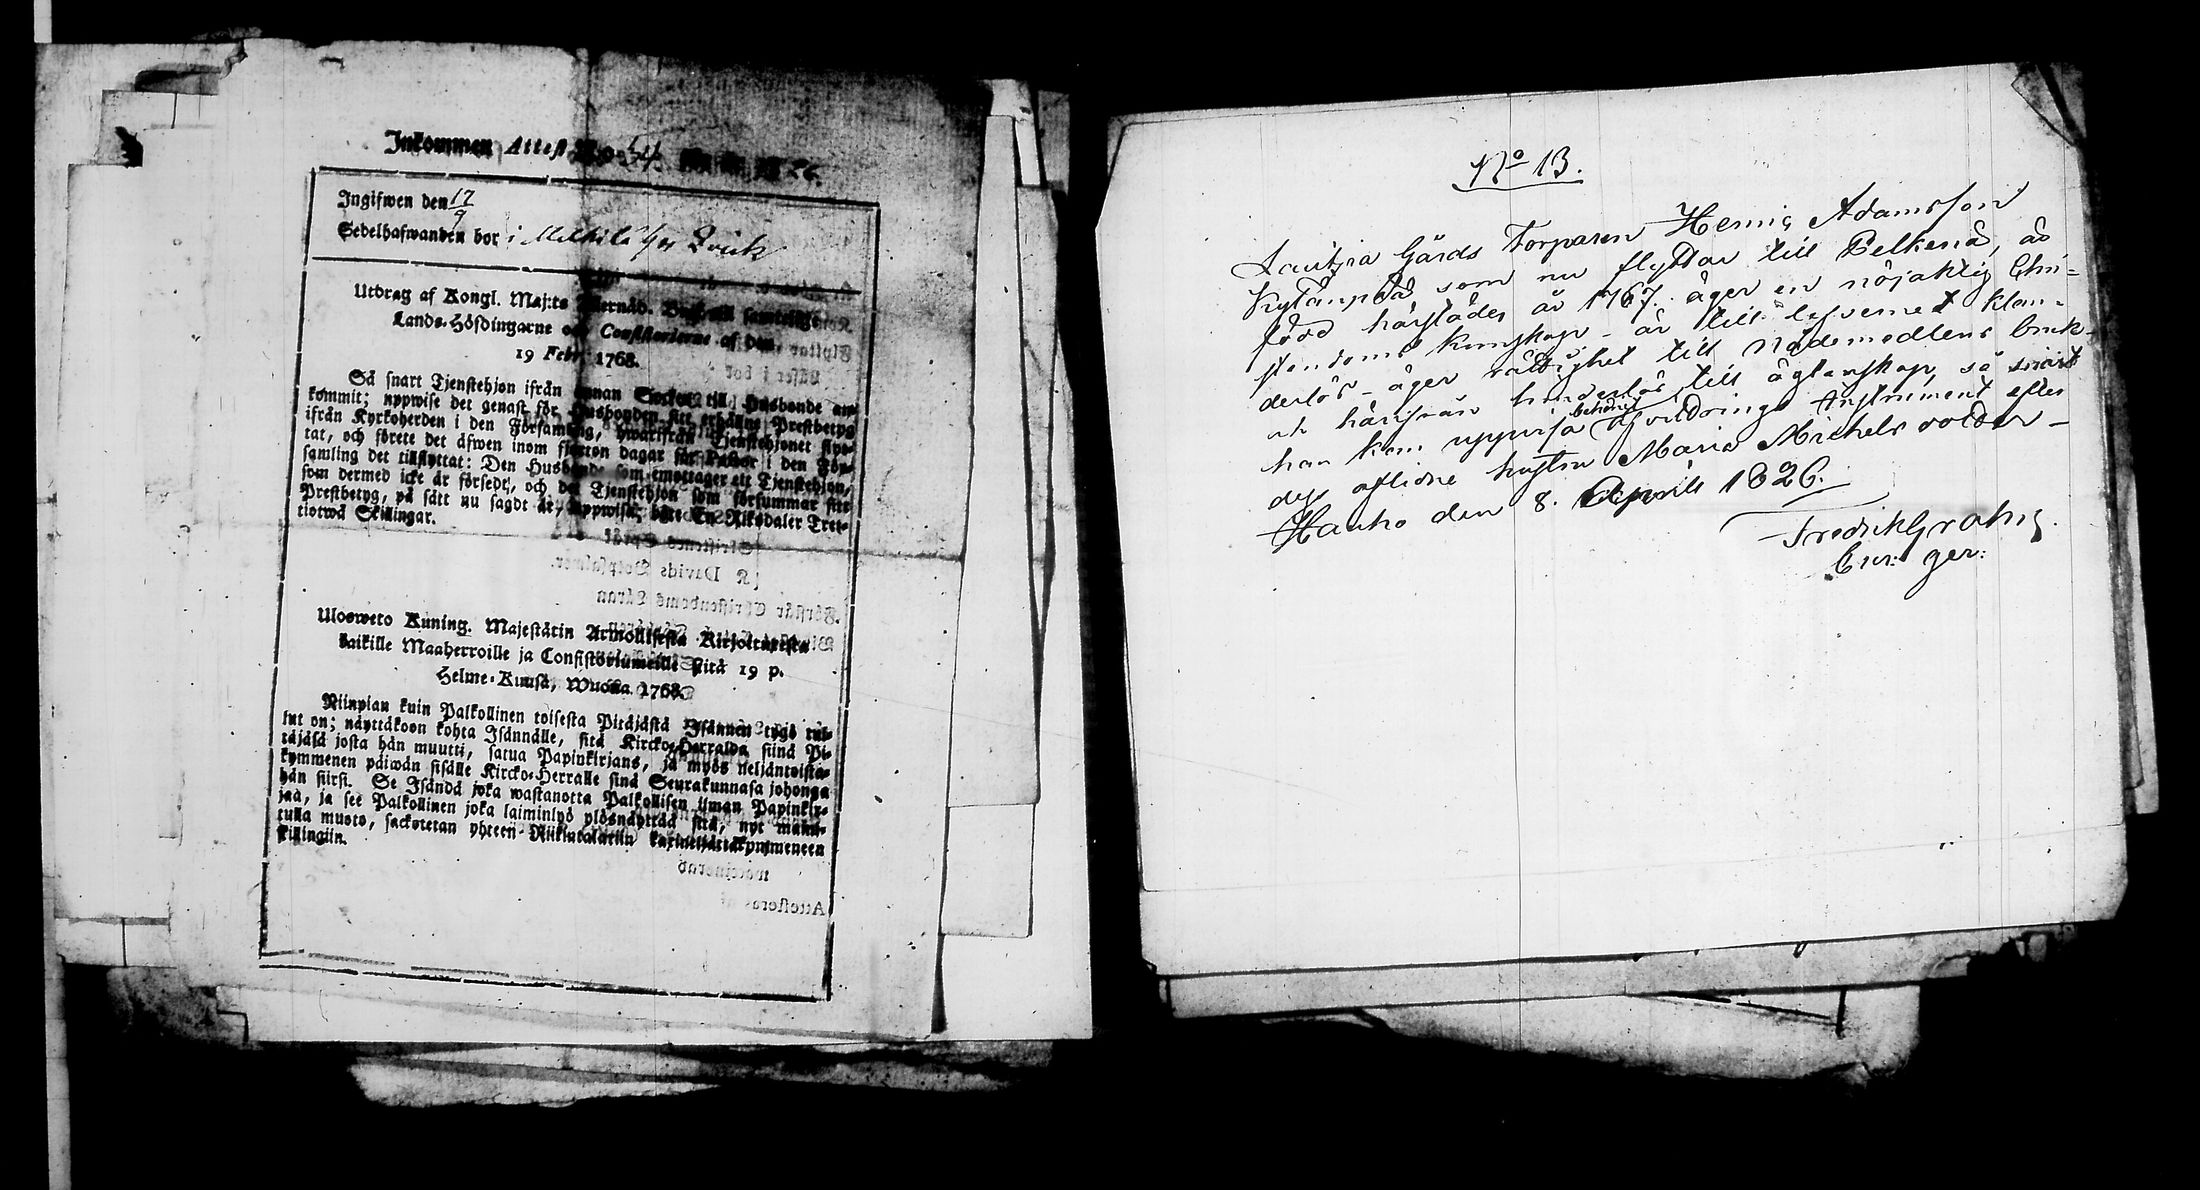 Inkommen Attest N:o 54. 26.
Ingifwen den 17/9
Sedelhafwanden bor i
Utdrag af Kongl. Maj:ts Allernåd. Bref till samtelige
Lands-Höfdingarne och Consistorierne af den
19 Febr. 1768.
Så snart Tjenstehjon ifrån annan Socken till Husbonde an-
kommit; uppwise det genast för Husbonden sitt erhållne Prestbetyg
ifrån Kyrkoherden i den Församling, hwarifrån Tjenstehjonet flyt-
tat, och förete det äfwen inom fjorton dagar för Pastor i den För-
samling det tillflyttat: Den Husbonde som emottager ett Tjenstehjon,
som dermed icke är försedt, och det Tjenstehjon som försummar sitt
Prestbetyg, på sätt nu sagdt är, uppwisa, böte En Riksdaler Tret-
tiotwå Skillingar.
Ulosweto Kuning. Majestätin Armollisesta Kirjoituxesta
kaikille Maaherroille ja Consistoriumeille sitä 19 p.
Helme-Kuusa, Wuonna 1768.
Niinpian kuin Palkollinen toisesta Pitäjästä Isännän tygö tul-
lut on; näyttäkoon kohta Isännälle, sitä Kircko-Herralda siinä Pi-
täjäsä josta hän muutti, saatua Papinkirjans, ja myös neljäntoista-
kymmenen päiwän sisälle Kircko-Herralle siinä Seurakunnasa johonga
hän siirsi. Se Isändä joka wastanotta Palkollisen ilman Papinkir-
jaa, ja see Palkollinen joka laiminlyö ylösnäyttää sitä, nyt maini-
tulla muoto, sackotetan yhteen Riikintalariin kaxineljättäkymmeneen
killingiin.
N:o 13.
Lautsia Gårds Torparen Hemig Adamsson
Kylänpää som nu flyttar till Pelkenä, är
född härstädes år 1767. äger en nöjaktig Chri-
stendoms kunskap - är till lefvernet klan-
derlös - äger rättighet till Nådemedlens bruk
och härifrån hinderlös till ägtenskap, så snart
han kan uppvisa behörigt Afvittrings Instrument efter
dess aflidne hustru Maria Michelsdotter -
Hauho den 8. Aprill 1826.
Fredrik Grahn